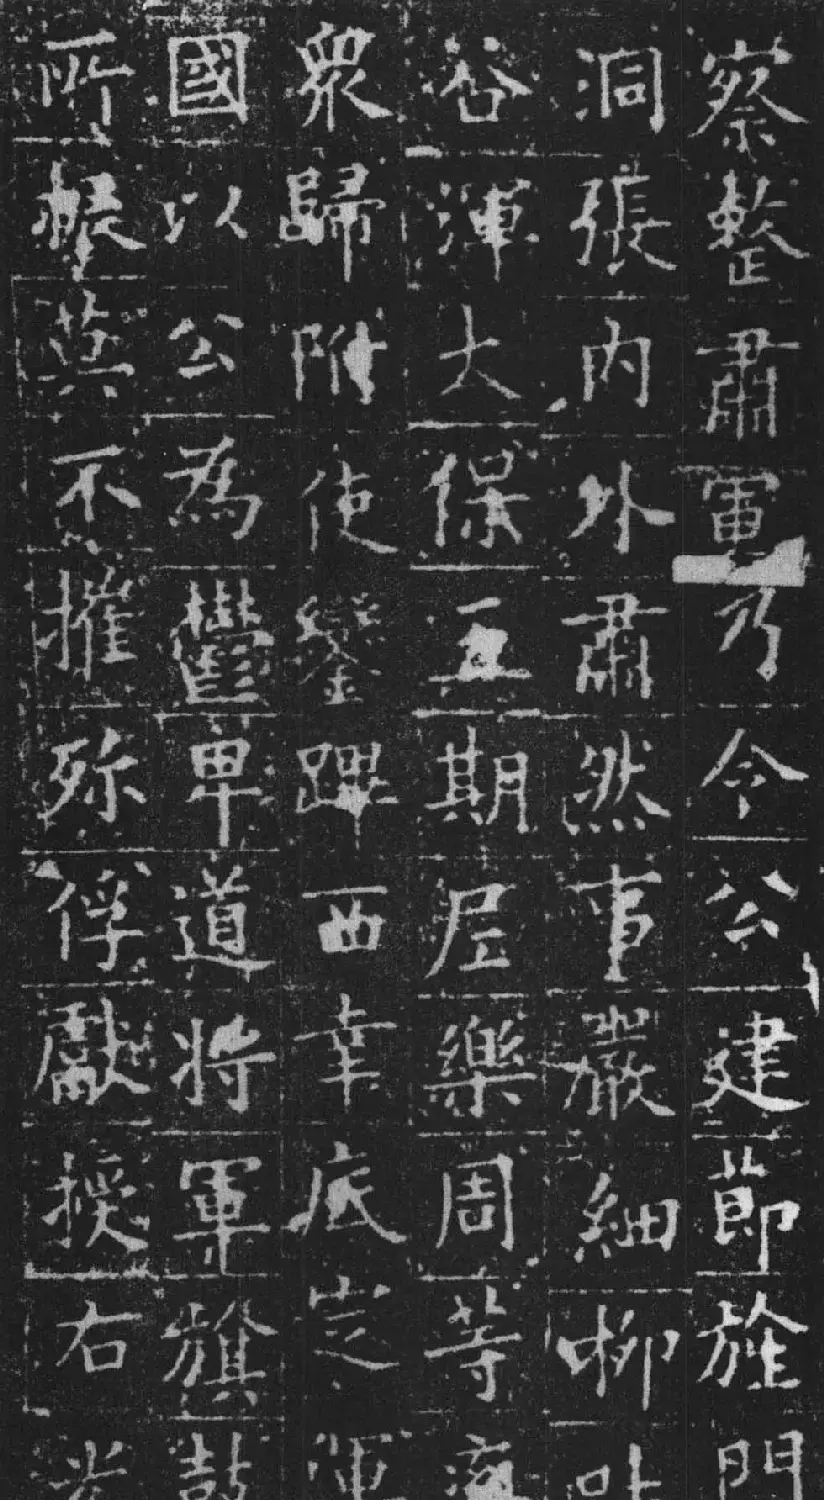 察整肅軍乃令公建節旌門
洞張內外肅然事嚴細柳
谷渾大保五期尼樂周等
衆歸附使鑾蹕西幸底定渾
國以公為鬱卑道將軍旗鼓
所振莫不摧殄俘獻授右